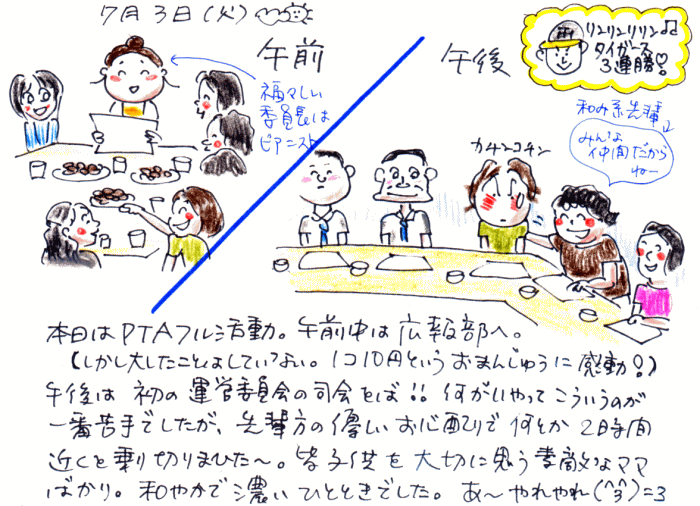 7月3日(火)
午前
福々しい
委員長は
ピアニスト
午後
リンリンリリン♫
タイガース
3連勝!
和み系先輩
みんな
仲間だから
ねー
カチンコチン
本日はPTAフル活動。午前中は広報部へ。
(しかし大したことはしていない。1コ10円というおまんじゅうに感動!)
午後は初の運営委員会の司会をば!!何がいやってこういうのが
一番苦手でしたが、先輩方の優しいお心配りで何とか2時間
近くを乗り切りまひた〜。皆子供を大切に思う素敵なママ
ばかり。和やかで濃いひとときでした。あ〜やれやれ(^^3)=3